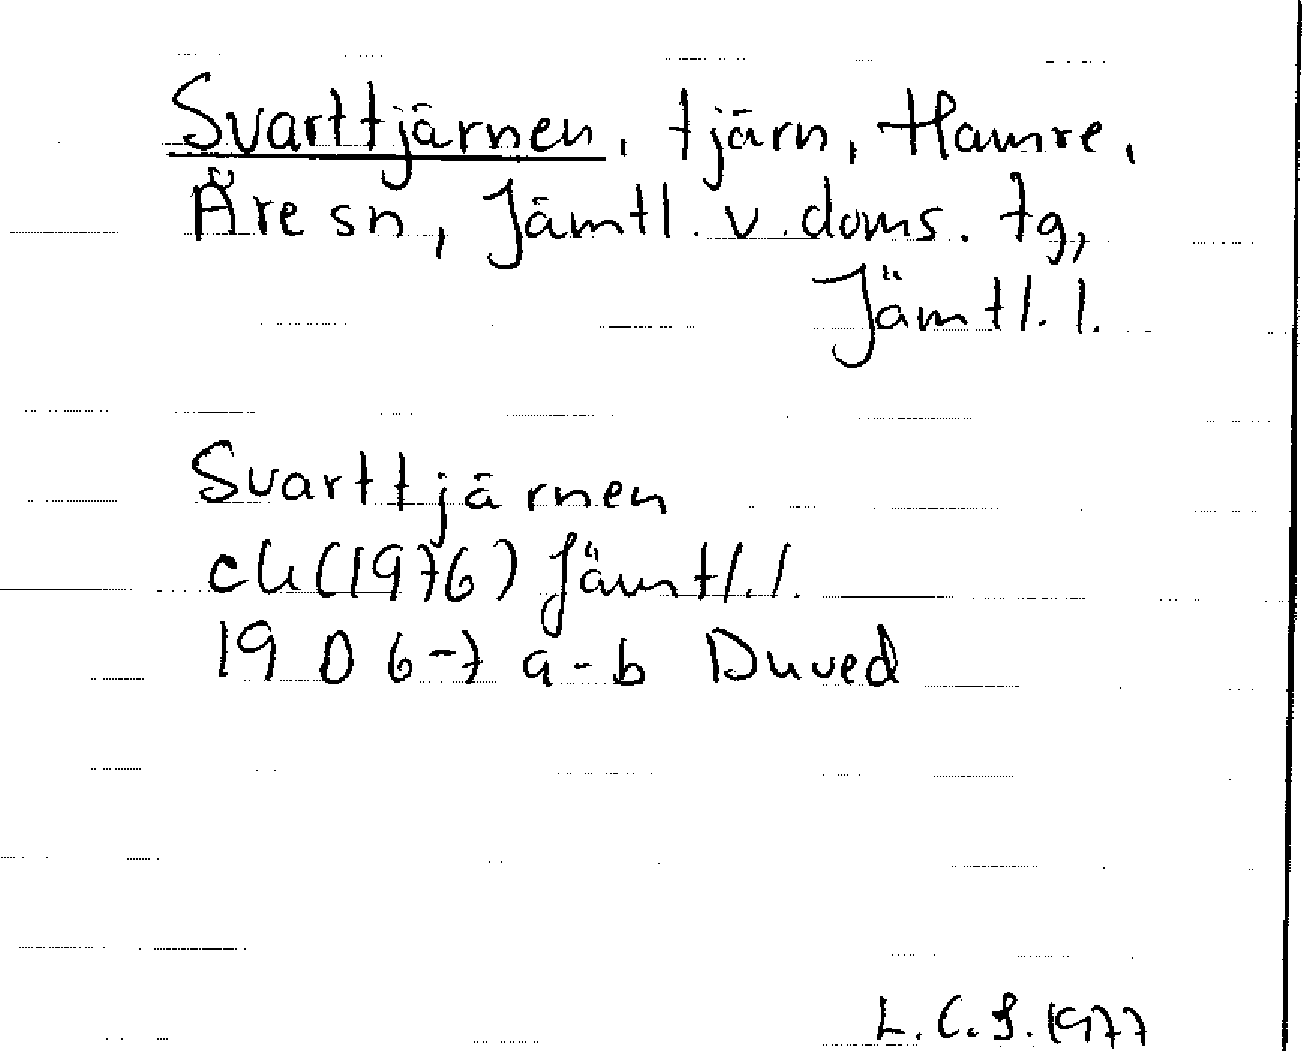 Svarttjärnen, tjärn, Hamre,
Åre sn, Jämtl. v. doms. tg,
Jämtl. l.
Svarttjärnen
ek (1976) Jämtl. l.
19 D 6-7 a-b Duved
L. C. S. 1977